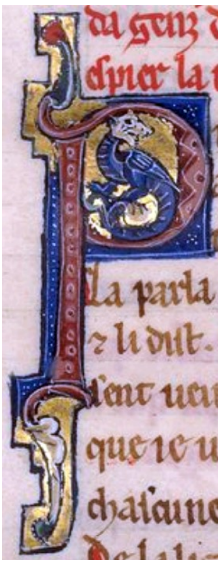 da genz d
espier la c
P
La parla
⁊ li dist.
sent ueu
que ie u
chascune